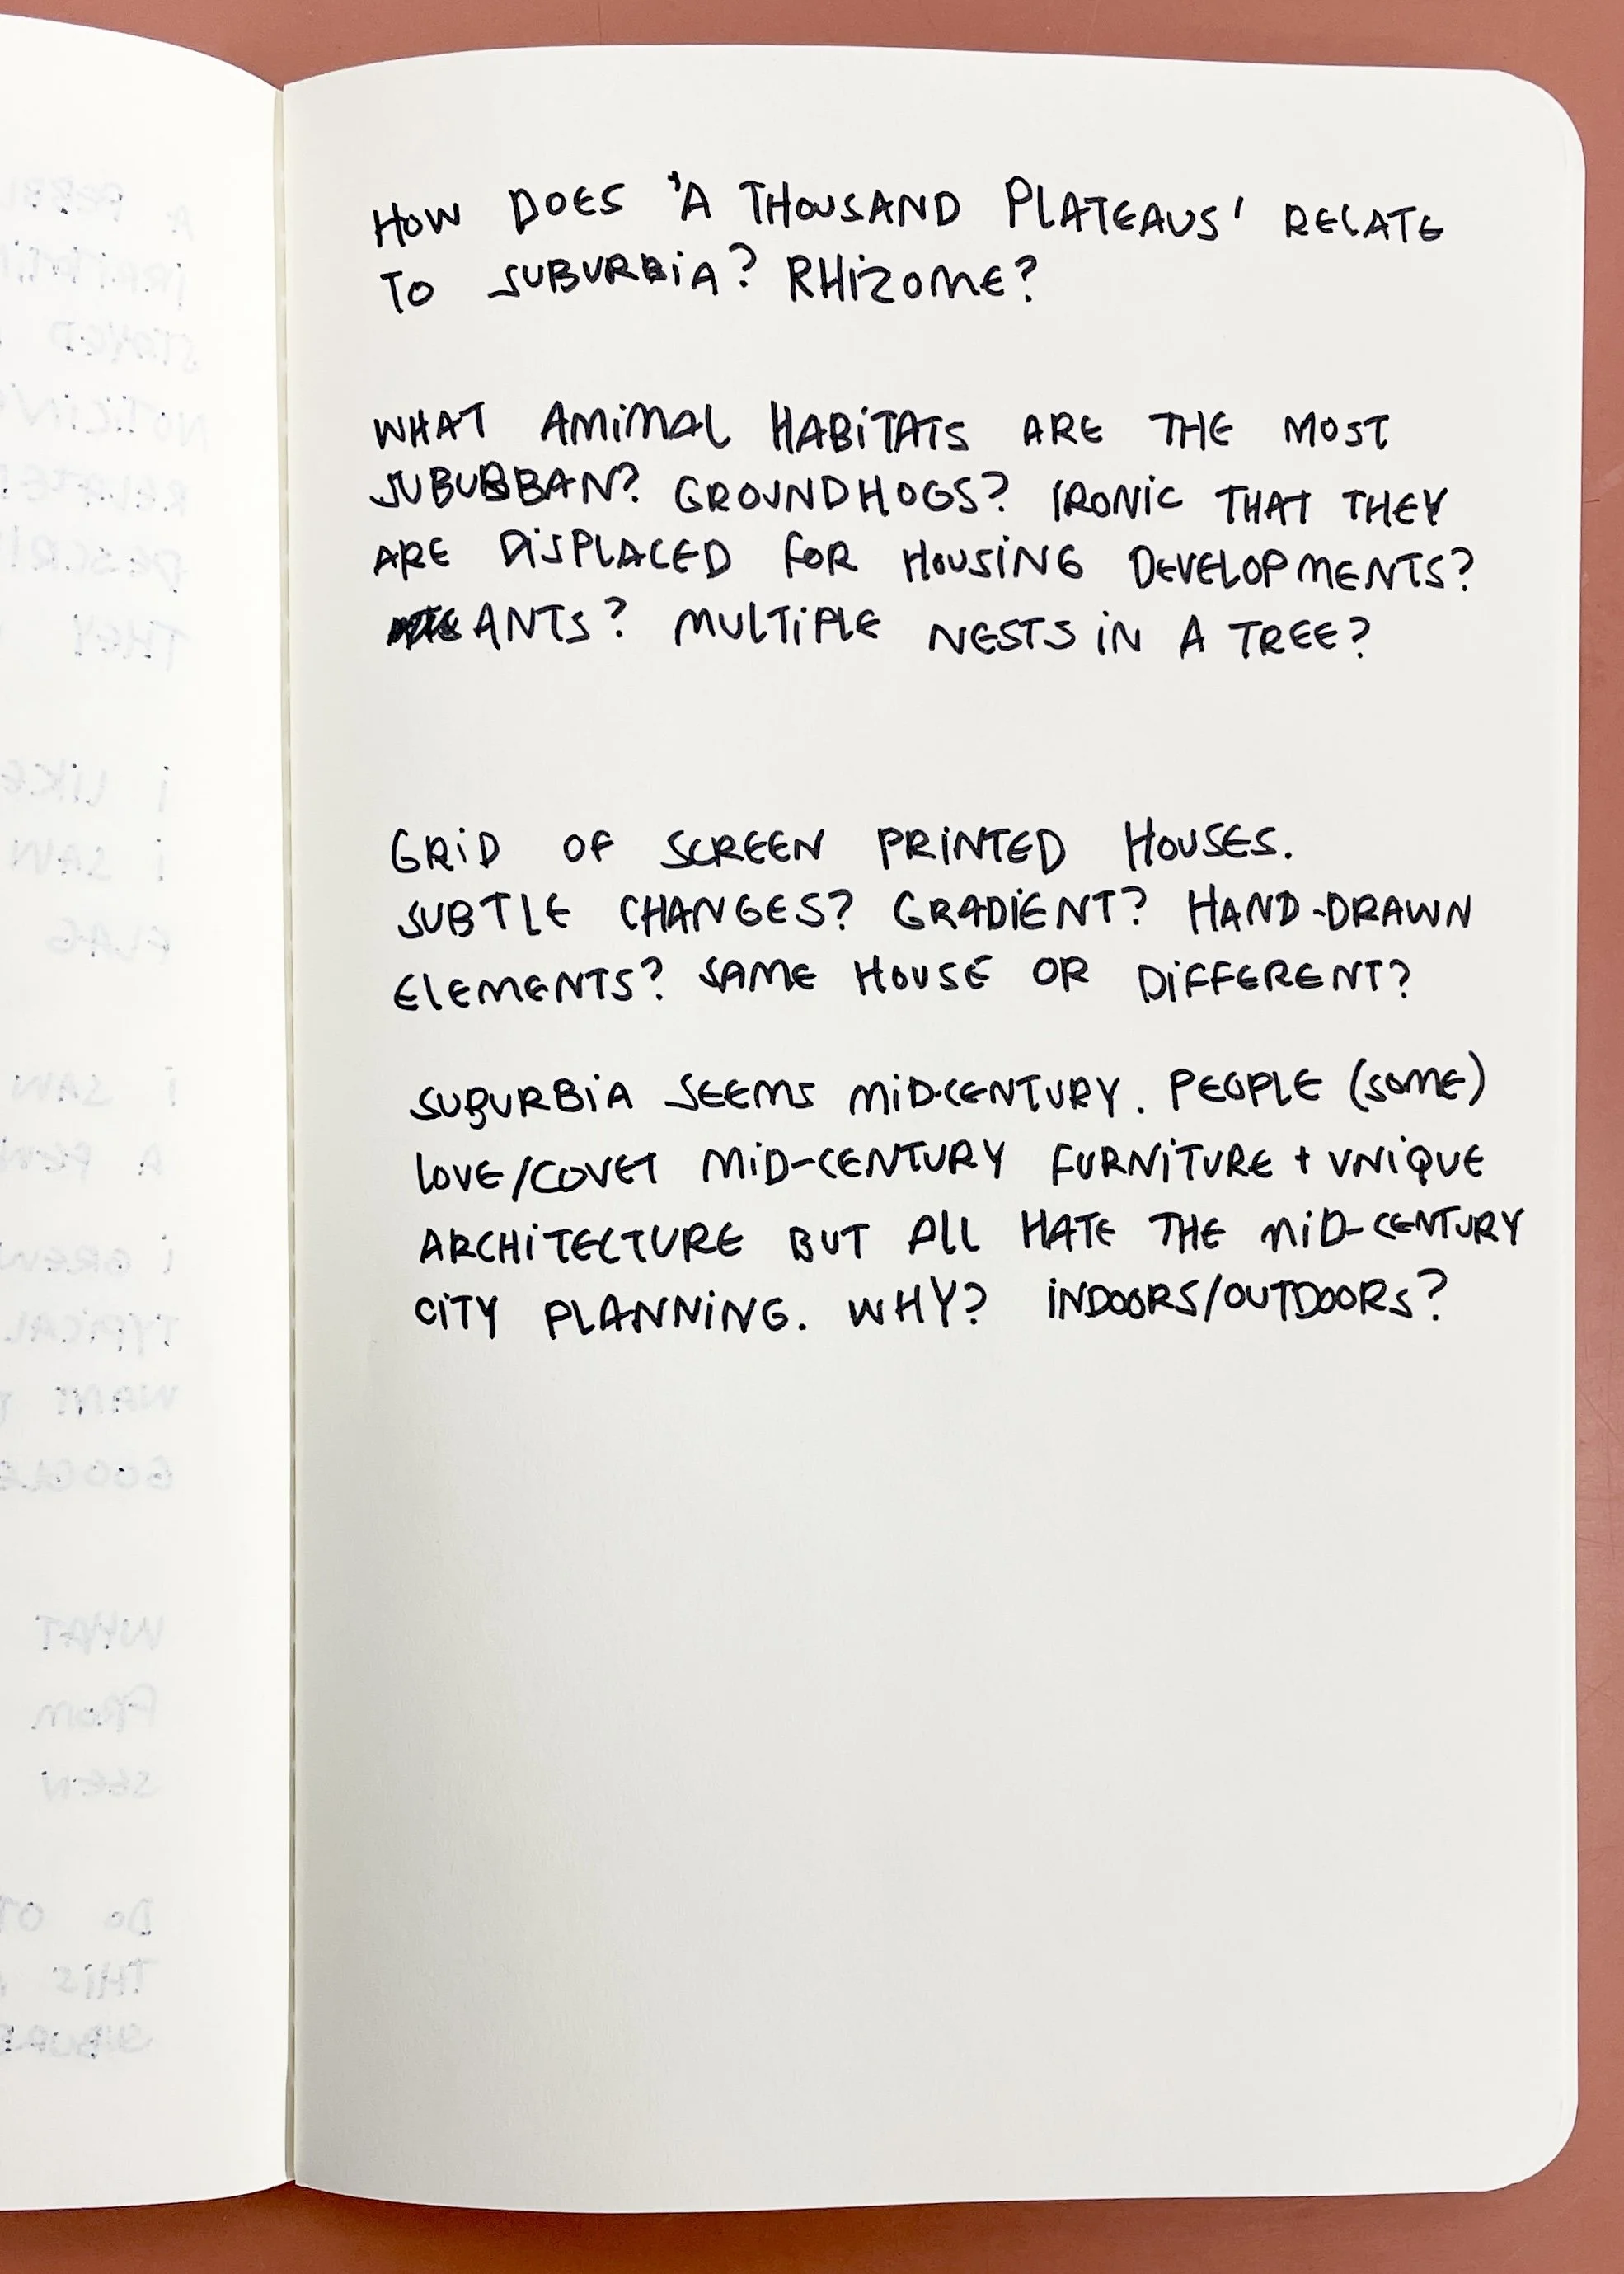 HOW DOES 'A THOUSAND PLATEAUS' RELATE
TO SUBURBIA? RHIZOME?
WHAT ANIMAL HABITATS ARE THE MOST
SUBUBBAN? GROUNDHOGS? IRONIC THAT THEY
ARE DISPLACED FOR HOUSING DEVELOPMENTS?
ANTS? MULTIPLE NESTS IN A TREE?
GRID OF SCREEN PRINTED HOUSES.
SUBTLE CHANGES? GRADIENT? HAND-DRAWN
ELEMENTS? SAME HOUSE OR DIFFERENT?
SUBURBIA SEEMS MID-CENTURY. PEOPLE (SOME)
LOVE/COVET MID-CENTURY FURNITURE + UNIQUE
ARCHITECTURE BUT ALL HATE THE MID-CENTURY
CITY PLANNING. WHY? INDOORS/OUTDOORS?